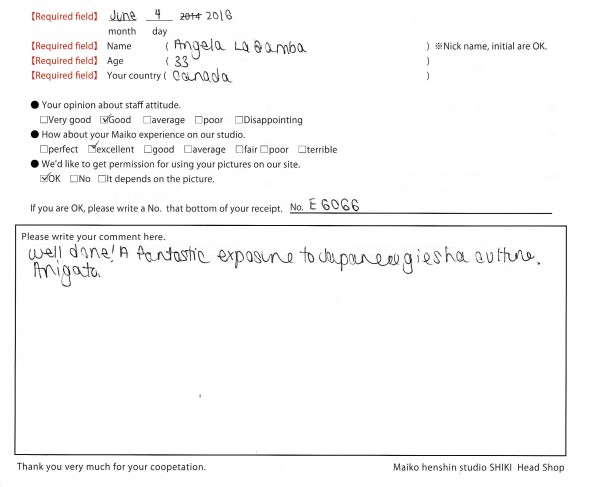 【Required field】 June 4 2014 2016
month day
【Required field】 Name ( Angela LaGamba ) ※Nick name, initial are OK.
【Required field】 Age ( 33 )
【Required field】 Your country ( Canada )
● Your opinion about staff attitude.
□Very good ☑Good □average □poor □Disappointing
● How about your Maiko experience on our studio.
□perfect ☑excellent □good □average □fair □poor □terrible
● We'd like to get permission for using your pictures on our site.
☑OK □No □It depends on the picture.
If you are OK, please write a No. that bottom of your receipt. No. E6066
Please write your comment here.
well done! A fantastic exposure to Japanese giesha culture.
Arigata
Thank you very much for your coopetation. Maiko henshin studio SHIKI Head Shop